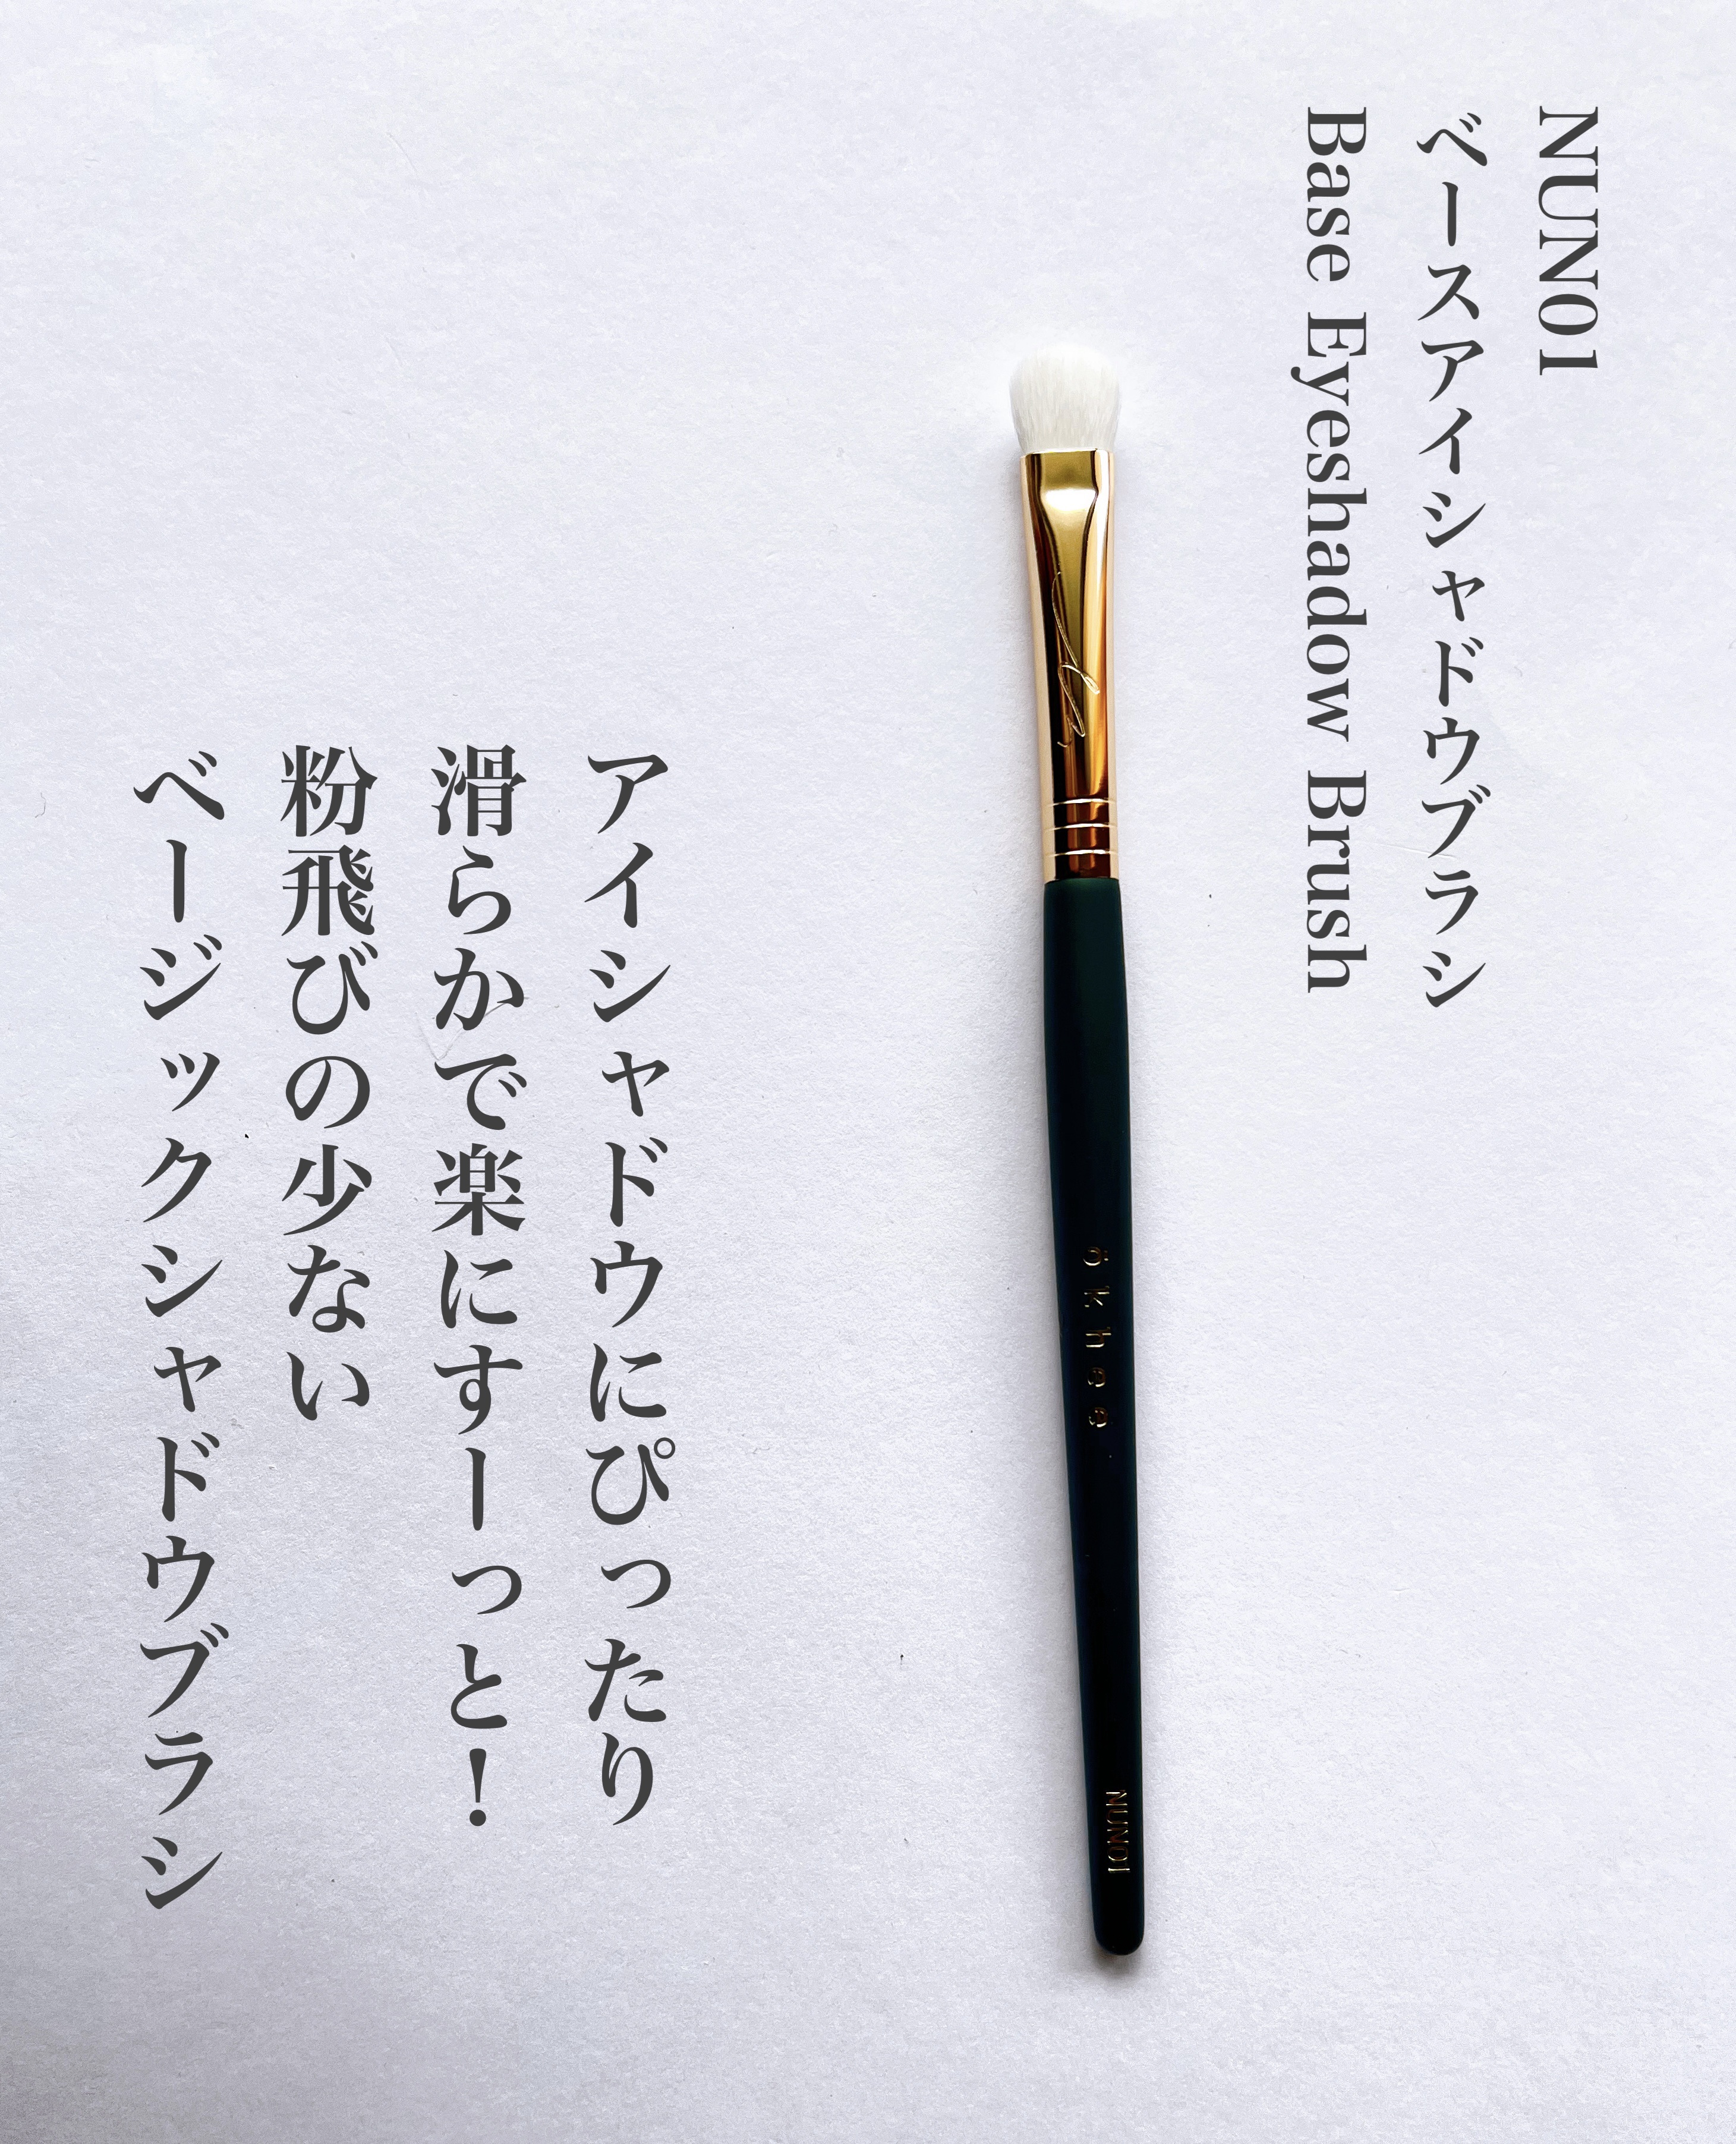 NUN01
ベースアイシャドウブラシ
Base Eyeshadow Brush
ōkhee
NUN01
アイシャドウにぴったり
滑らかで楽にすーっと！
粉飛びの少ない
ベージックシャドウブラシ